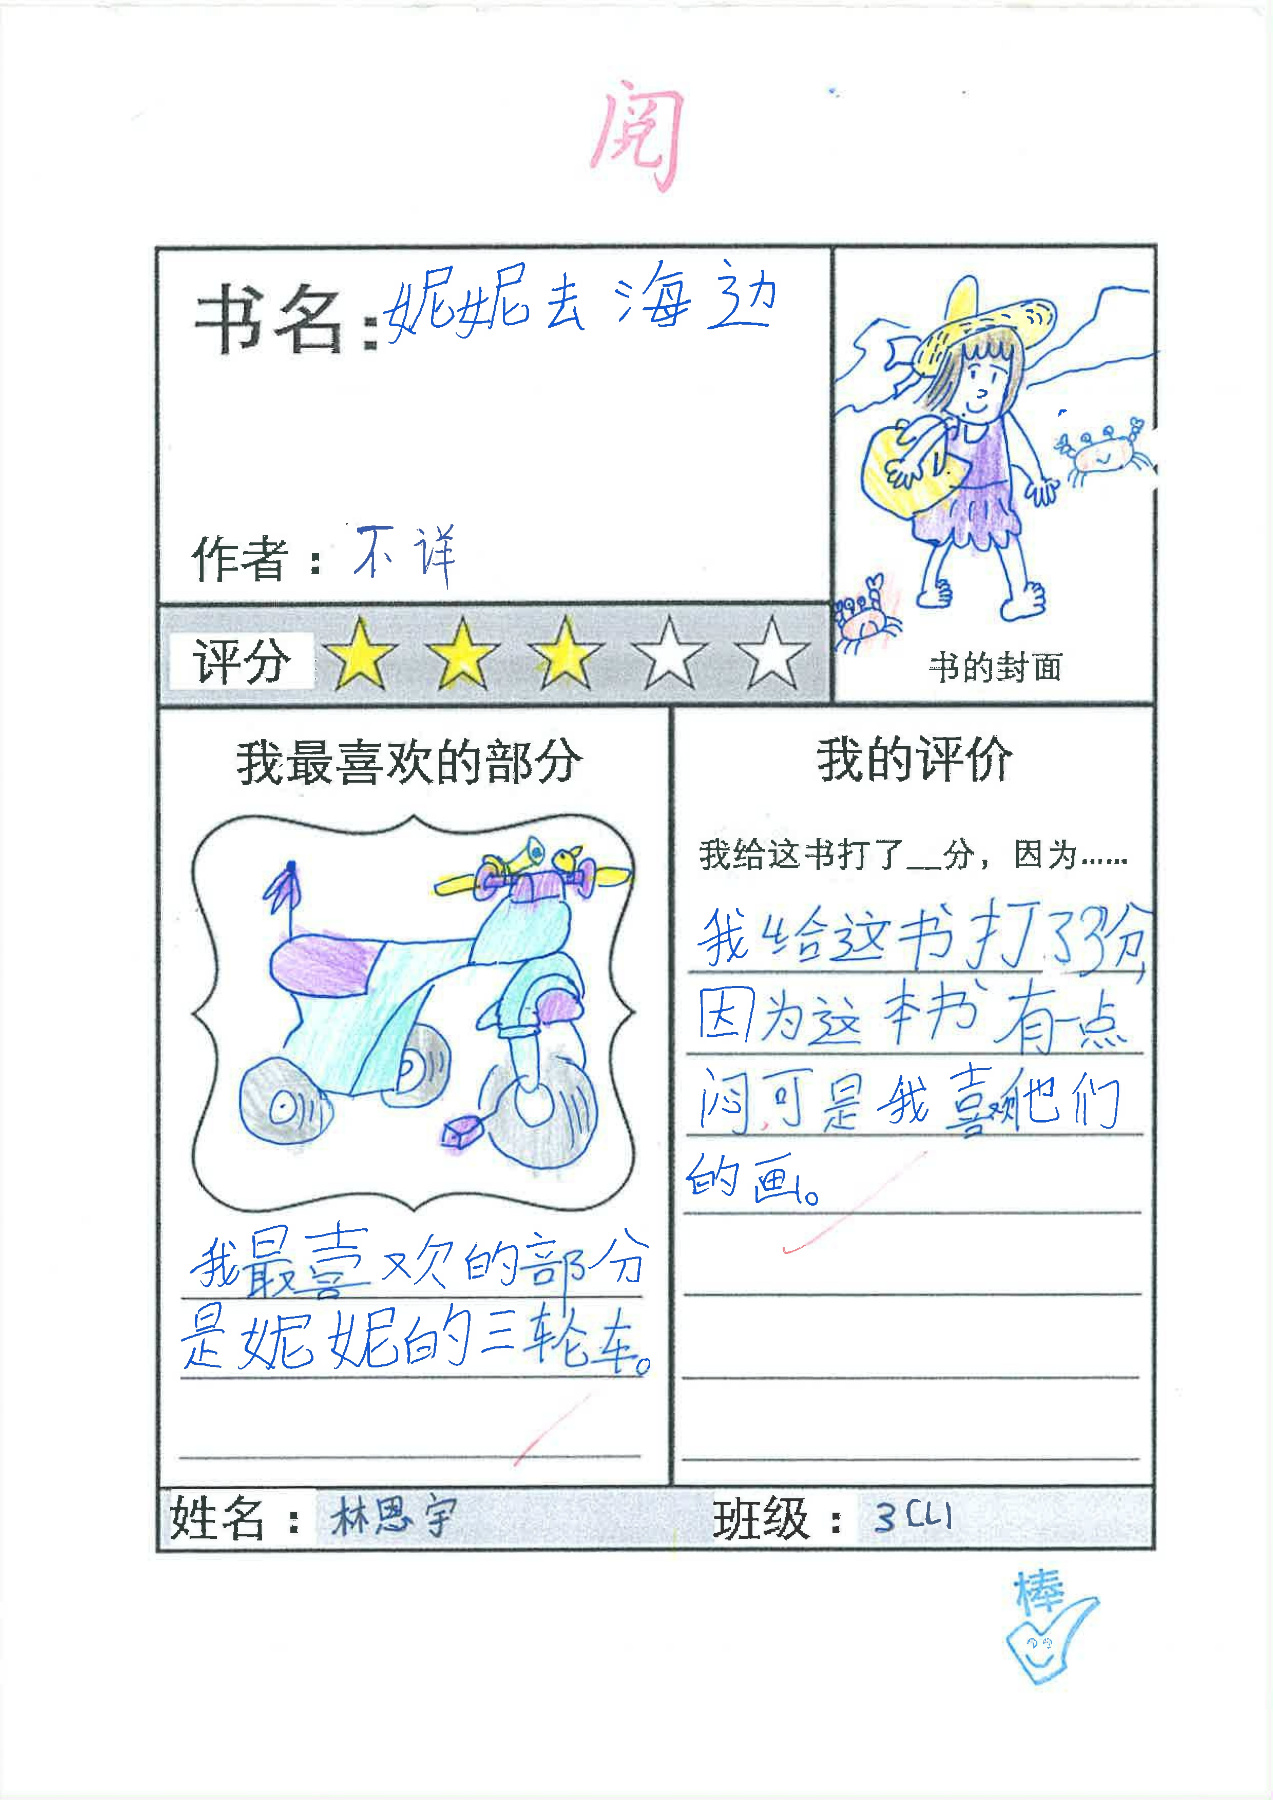 阅
书名:妮妮去海边
作者：不详
评分
书的封面
我最喜欢的部分
我最喜欢的部分
是妮妮的三轮车。
我的评价
我给这书打了__分，因为……
我给这书打了3分,
因为这本书有一点
闷,可是我喜欢他们
的画。
姓名：林恩宇
班级：3(L)
棒